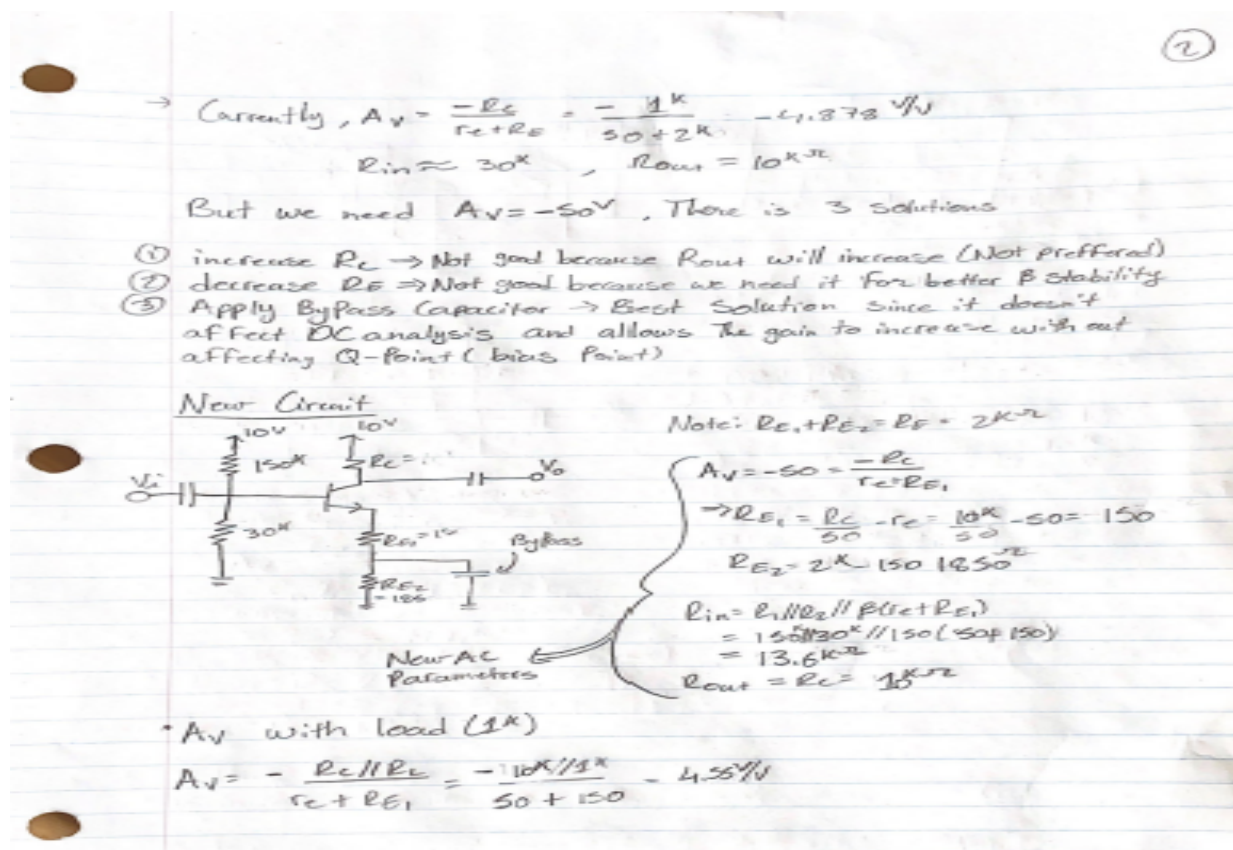 2
→ Currently, Av = -Rc / re+RE = - 1K / 50+2K -4.878 V/V
Rin ≈ 30K , Rout = 10KΩ
But we need Av = -50V , There is 3 solutions
① increase Rc → Not good because Rout will increase (Not preffered)
② decrease RE ⇒ Not good because we need it for better β stability
③ Apply ByPass Capacitor → Best Solution since it doesn't
affect DC analysis and allows the gain to increase with out
affecting Q-Point ( bias Point)
New Circuit
Note: RE1+RE2 = RE = 2KΩ
10V 10V
150K Rc =
Vi Vo
30K RE1=15 ByPass
RE2
= 185
Av = -50 = -Rc / re+RE1
→ RE1 = Rc / 50 - re = 10K / 50 - 50 = 150
RE2 = 2K 150 1850Ω
Rin = R1//R2// β(re+RE1)
= 150K//30K//150(50+150)
= 13.6KΩ
Rout = Rc = 10KΩ
New AC
Parameters
• Av with load (1K)
Av = - Rc//RL / re + RE1 = - 10K//1K / 50 + 150 - 4.55V/V